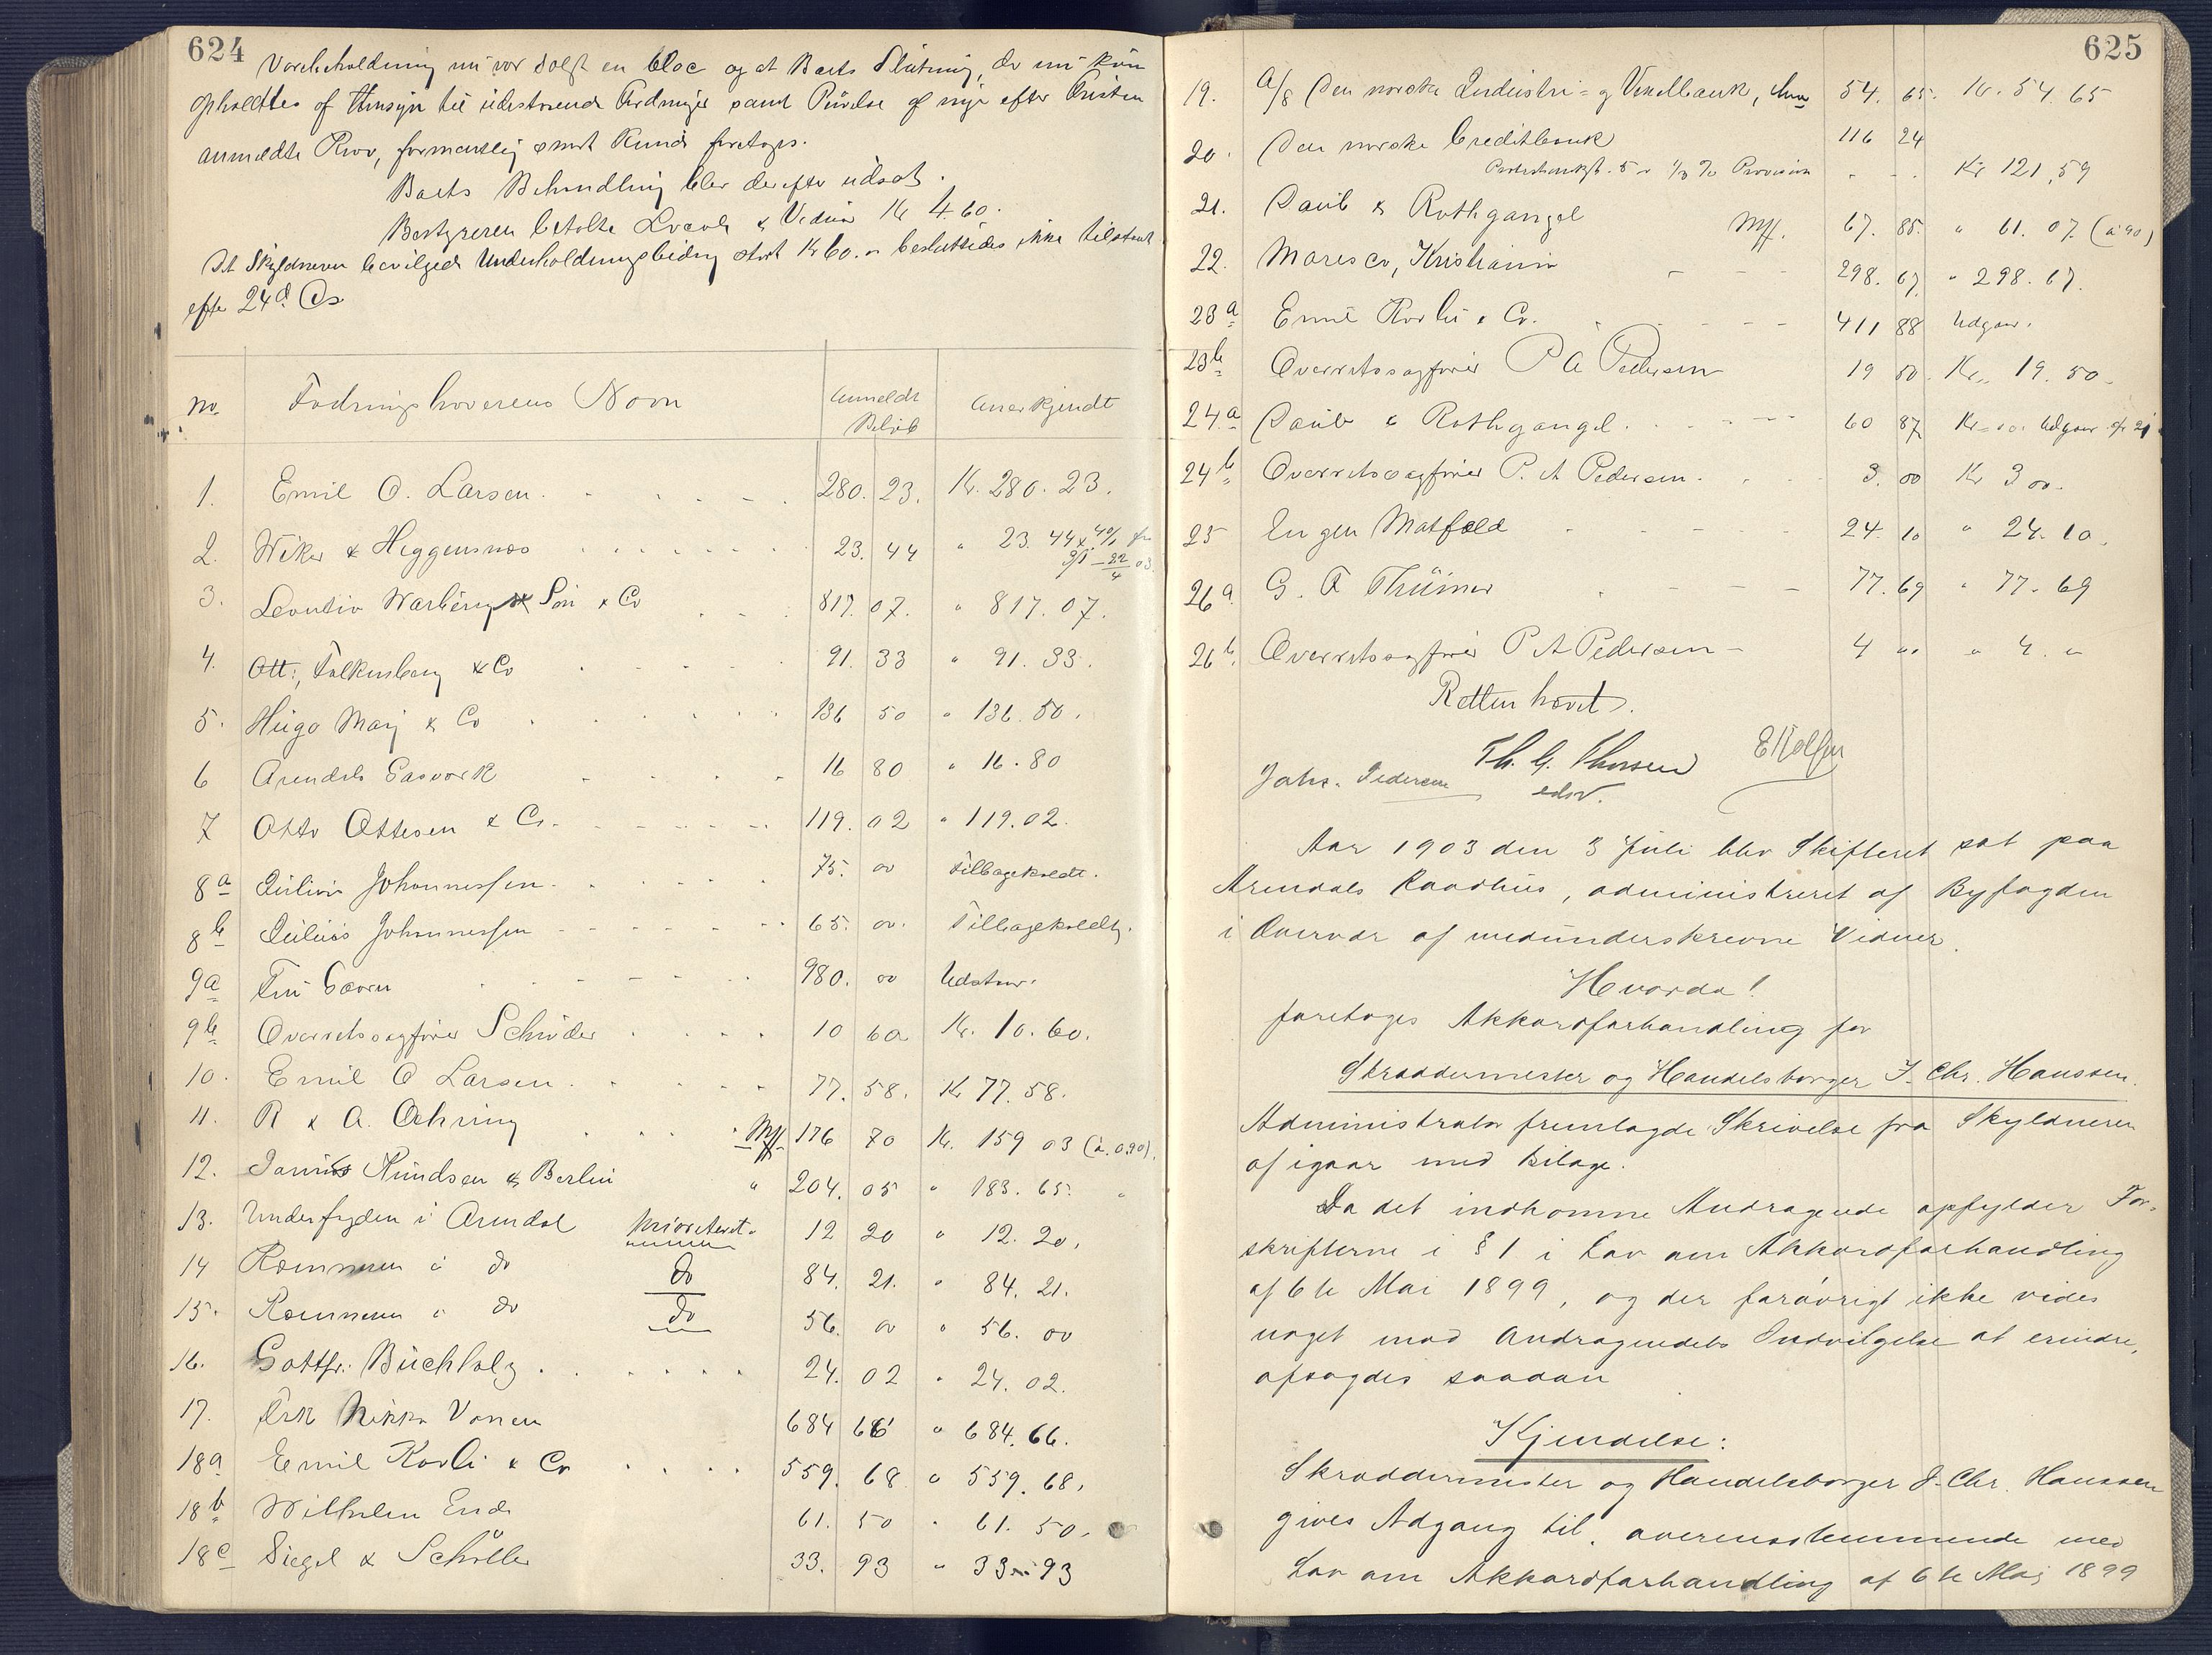 624
Varebeholdning nu var solgt en bloc og at Boets Slutning, der nu kun
opholdtes af Hensyn til udestaaende Fordringer samt Prøvelse af nye efter Fristen
anmeldte Krav, formentlig snart kunde foretages.
Boets Behandling blev derefter udsat.
Bestyreren betalte Locale & Vidner Kr 4.60.
Det Skyldneren bevilgede Underholdningsbidrag stort Kr 60.00 besluttedes ikke tilstaaet
efter 24d. Ds
No. Fordringshaverens Navn Anmeldt Beløb Anerkjendt
1. Emil O. Larsen 280. 23. Kr. 280. 23.
2. Wiker & Heggensnæs 23. 44 " 23. 44 x 4% fra
3. Leontin Warburg & Søn & Co 817. 07. " 817. 07.
4. Falkenberg & Co 91. 33 " 91. 33.
5. Hugo May & Co 136 50 " 136. 50.
6 Arendals Gasværk 16 80 " 16. 80
7 Otto Ottesen & Co. 119. 02 " 119. 02.
8a Julius Johannessen 75. 00 Tilbagekaldt.
8b Julius Johannessen 65. 00. Tilbagekaldt.
9a 980. 00 Udstaar.
9b Overretssagfører Schrøder 10 60 Kr. 10. 60.
10. Emil O Larsen 77. 58. Kr 77. 58.
11. R & A. Oehring Mk. 176 70 Kr. 159 03 (à. 0.90).
12. Knudsen & Berlin " 204. 05 " 183. 65. "
13. Underfogden i Arendal prioriteret 12 20 " 12. 20.
14 Kæmneren i do do 84. 21. " 84. 21.
15. Kæmneren i do do 56. 00 " 56. 00
16. Gottfr. Buchholz 24. 02 " 24. 02.
17. 684 66 " 684. 66.
18a Emil Korli & Co 559. 68 " 559. 68.
18b Wilhelm Ende 61. 50 " 61. 50.
18c Siegel & Schöller 33. 93 " 33 93
625
19. A/S Den norske Industri- og Vexelbank, 54. 65. Kr. 54. 65
20. Den norske Creditbank 116 24
5.00 1/3 % Provision Kr 121,59
21. Daub & Rothgangel Mk. 67. 85. " 61. 07. (à 90)
22. Mores Co, Kristiania 298. 67. " 298. 67.
23a Emil Korli & Co. 411 88 Udgaar.
23b Overretssagfører P A Pedersen 19 50. Kr. 19. 50.
24a Daub & Rothgangel 60 87 Kr Udgaar cfr 21
24b Overretssagfører P. A Pedersen 3. 00 Kr 3 00.
25 Eugen Matfeld 24. 10 " 24. 10.
26a G. A Thümer 77. 69 " 77. 69
26b. Overretssagfører P A Pedersen 4 " " 4. "
Retten hævet.
Johs. Pedersen Th. G. Thorsen
edsv.
Aar 1903 den 3 Juli blev Skifteret sat paa
Arendals Raadhus, administreret af Byfogden
i Overvær af medunderskrevne Vidner.
Hvorda!
foretoges Akkordforhandling for
Skræddermester og Handelsborger J. Chr. Hanssen.
Administrator fremlagde Skrivelse fra Skyldneren
af igaar med Bilage.
Da det indkomne Andragende opfylder For-
skrifterne i § 1 i Lov om Akkordforhandling
af 6te Mai 1899, og der forøvrigt ikke vides
noget mod Andragendets Indvilgelse at erindre,
afsagdes saadan
Kjendelse:
Skræddermester og Handelsborger J. Chr. Hanssen
gives Adgang til, overensstemmende med
Lov om Akkordforhandling af 6te Mai 1899